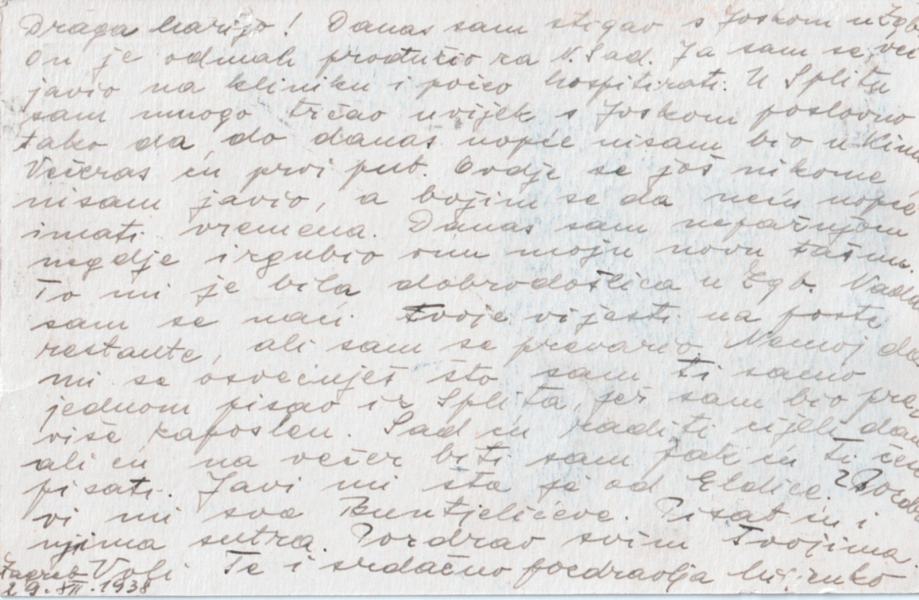 Draga Marijo! Danas sam stigao s Joskom u Zgb.
On je odmah produžio za N. Sad. Ja sam se već
javio na kliniku i počeo hospitirati. U Splitu
sam mnogo trčao uvijek s Joskom poslovno
tako da do danas uopće nisam bio u kinu
Večeras ću prvi put. Ovdje se još nikome
nisam javio, a bojim se da neću uopće
imati vremena. Danas sam nepažnjom
negdje izgubio onu moju novu tašnu.
To mi je bila dobrodošlica u Zgb. Nada
sam se naći tvoje vijesti na poste
restante, ali sam se prevario. Nemoj da
mi se osvećuješ što sam ti samo
jednom pisao iz Splita, jer sam bio pre
više zaposlen. Sad ću raditi cijeli dan
ali ću na večer biti sam pak ću ti če
pisati. Javi mi šta je od Eldice. Pozd
vi mi sve Buntjelićeve. Pisat ću i
njima sutra. Pozdrav svim Tvojima
Voli Te i srdačno pozdravlja
Zagreb
29. XII. 1938